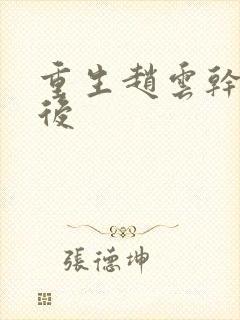 重生趙雲幹
後
張德坤